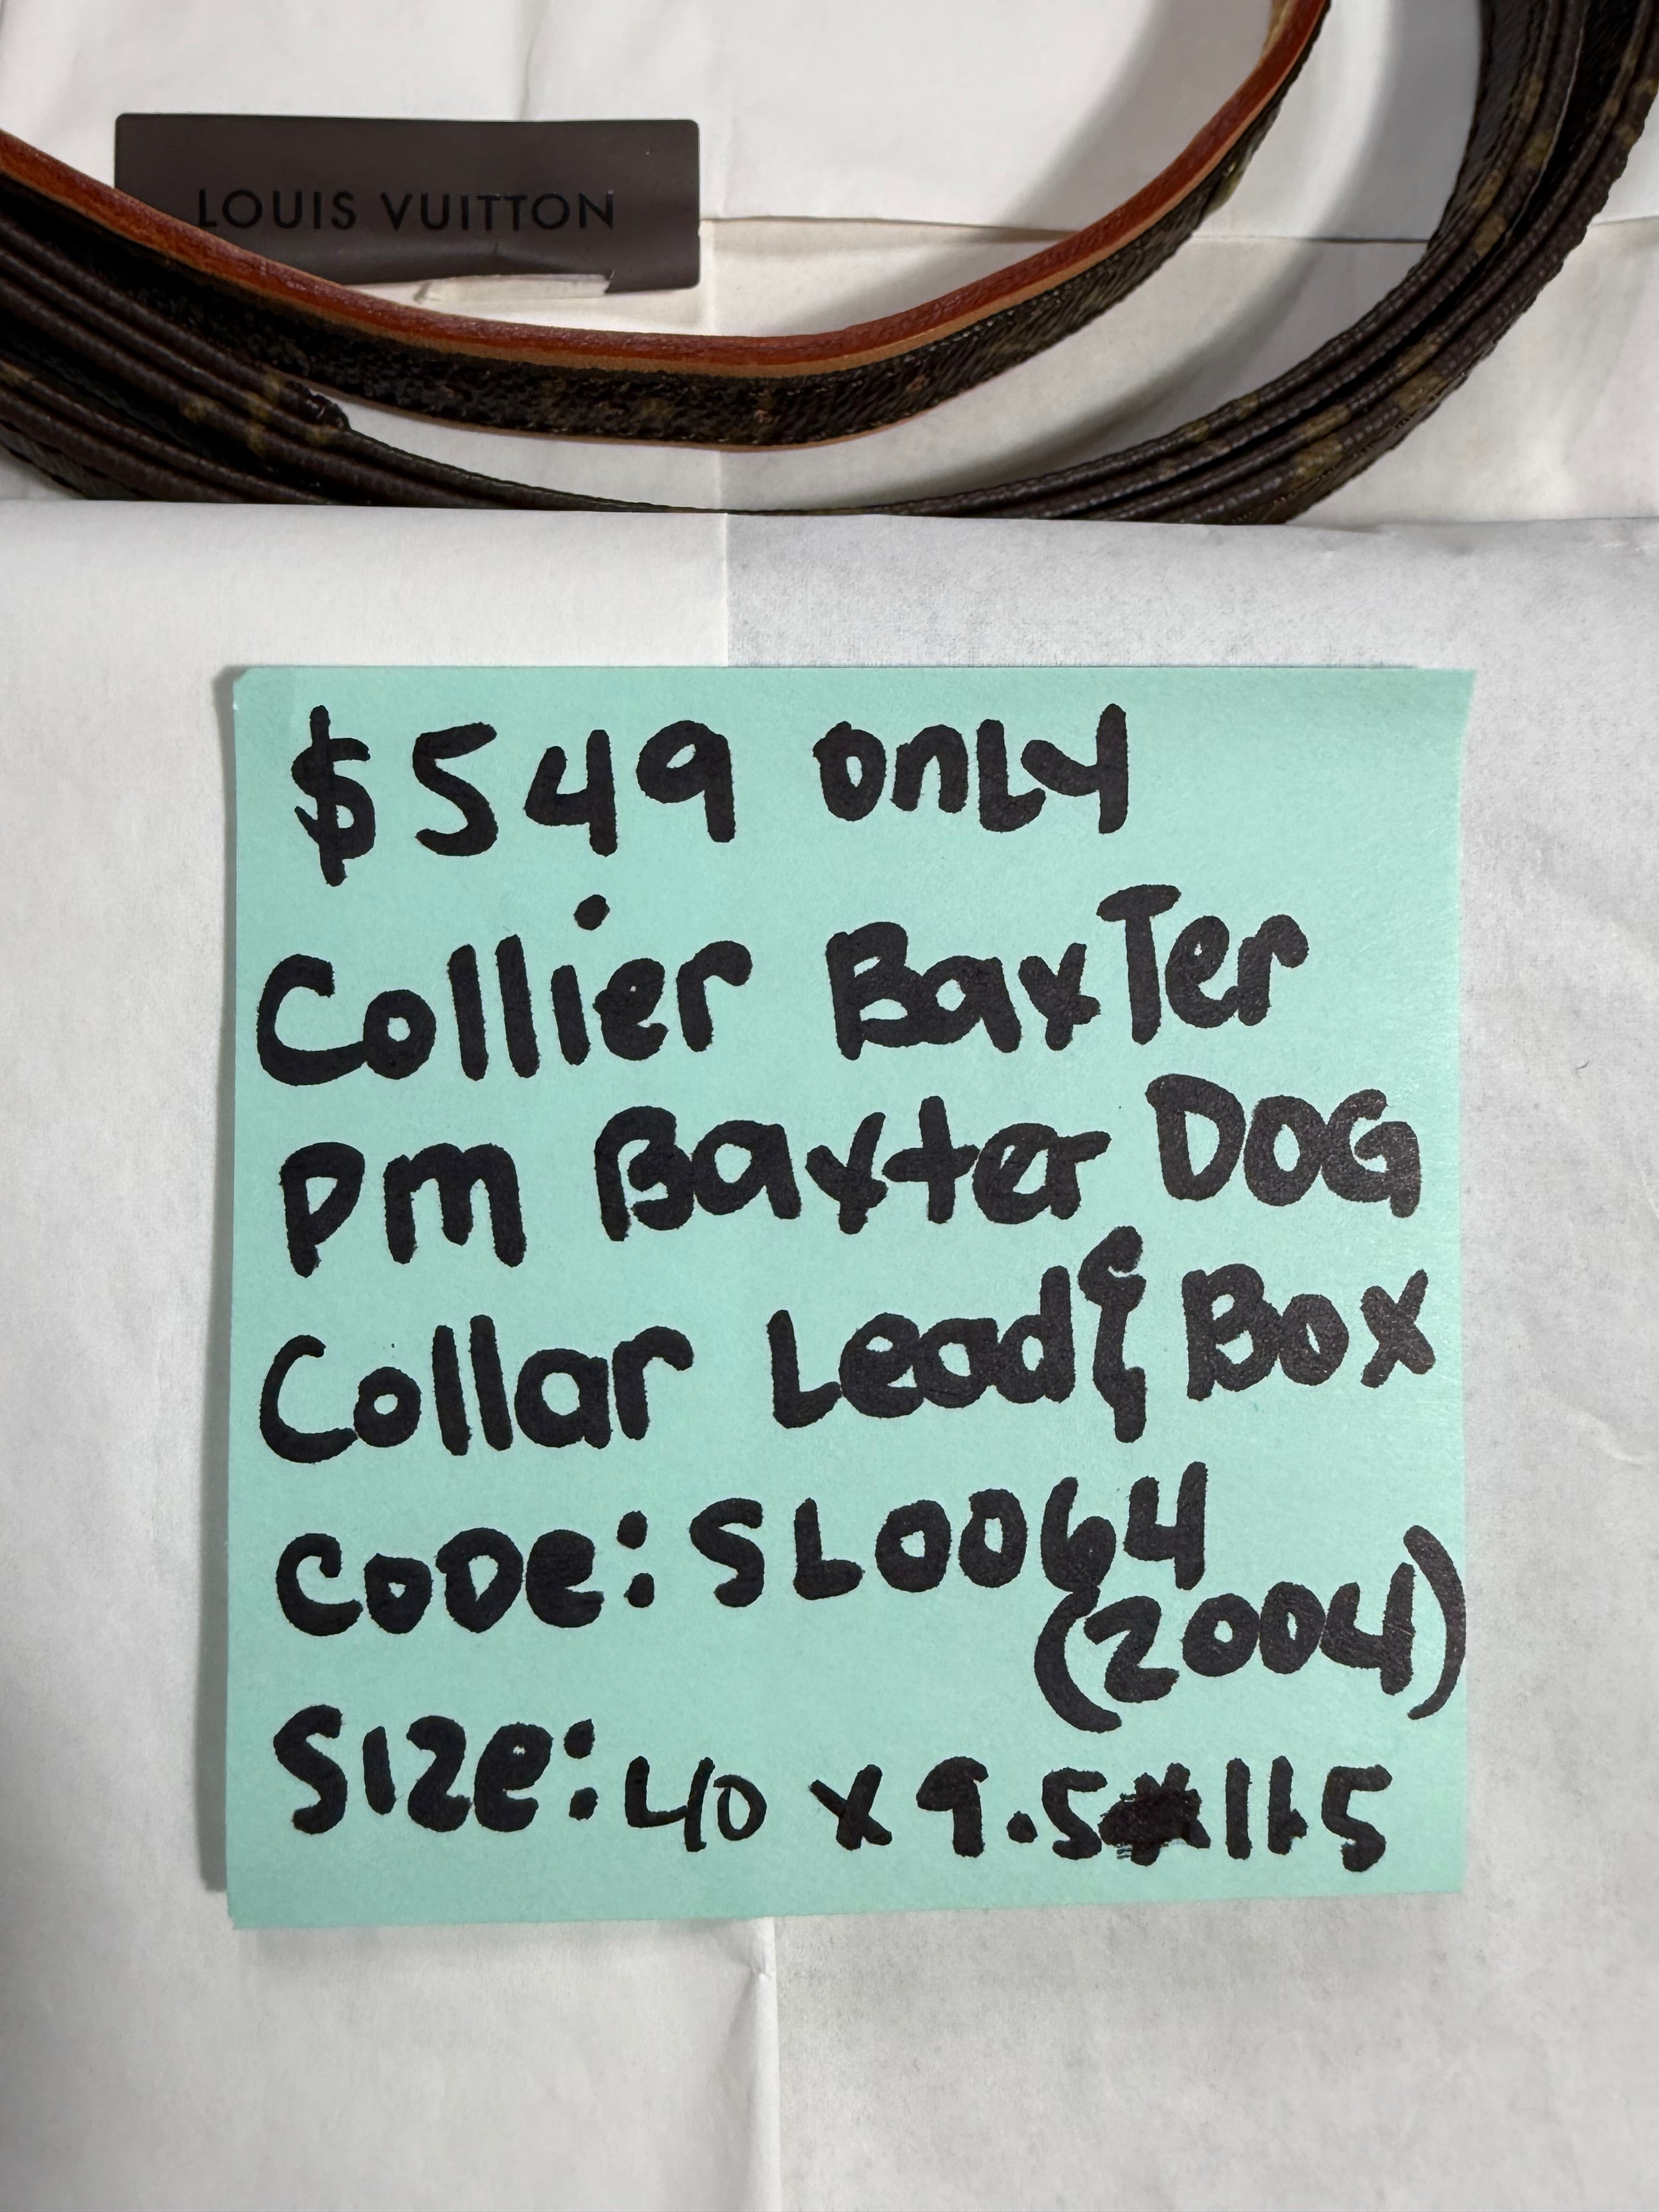 LOUIS VUITTON
$549 only
Collier Baxter
PM Baxter DOG
Collar Lead & Box
CODe: SL0064
(2004)
SIZe: 40 x 9.5